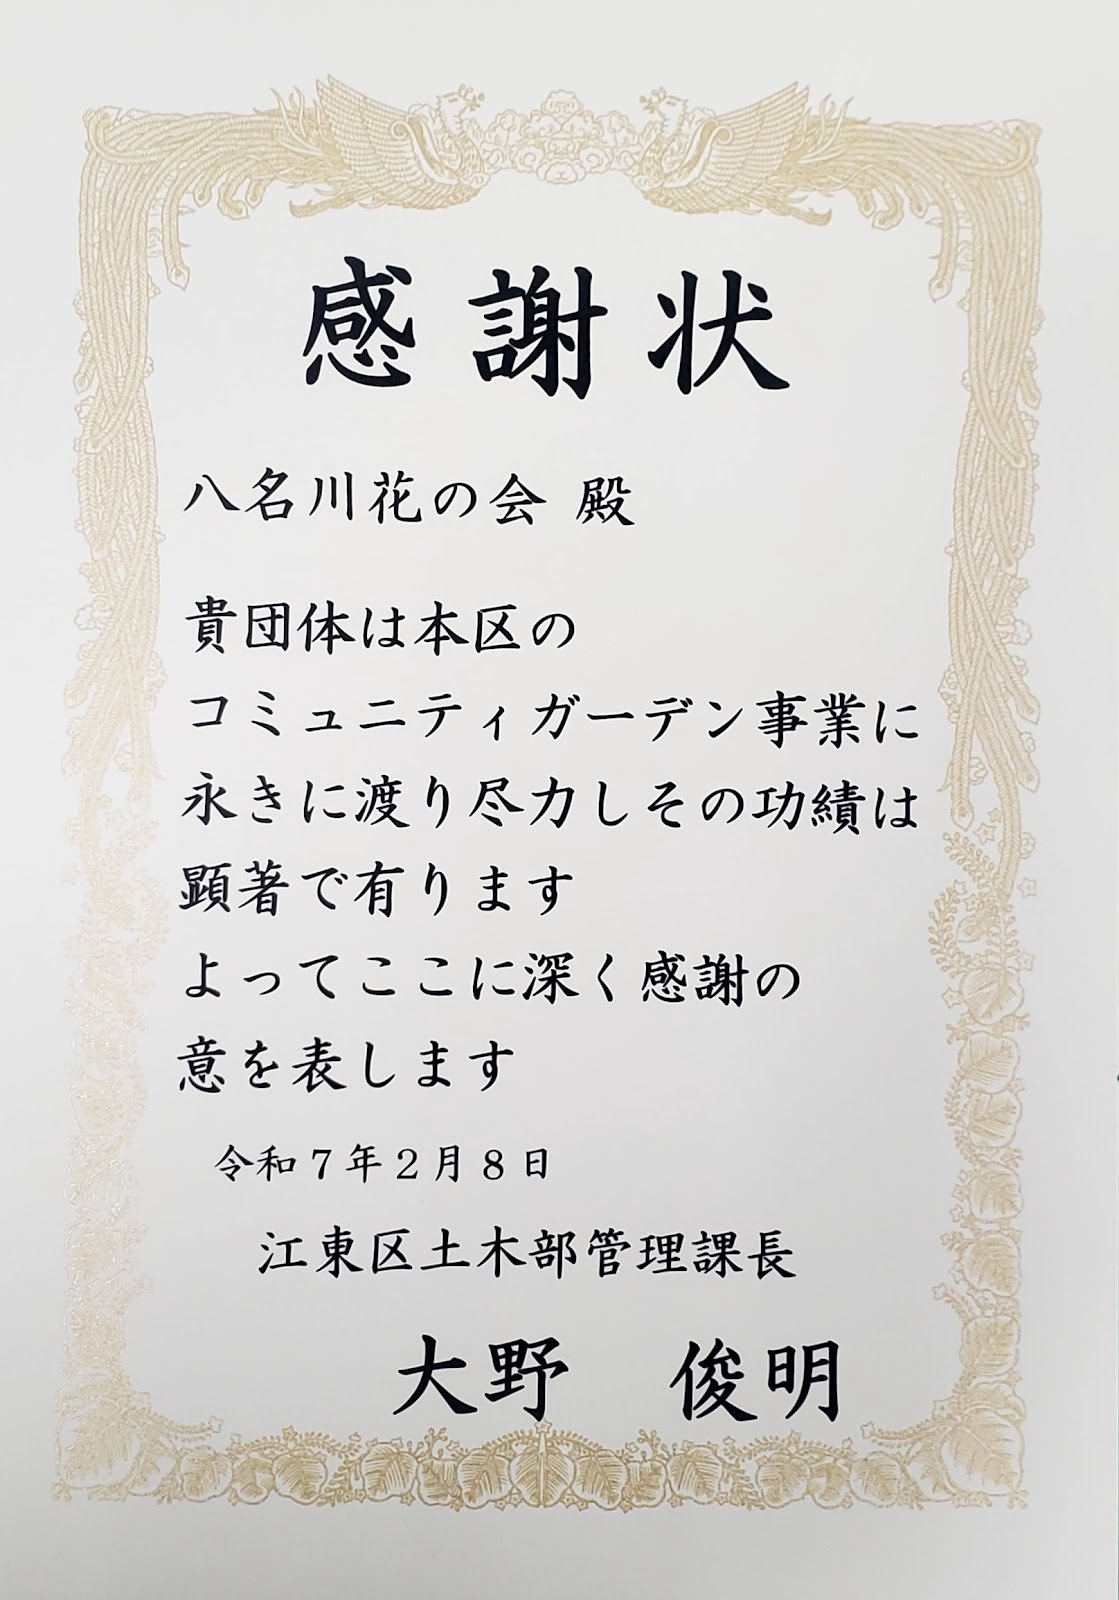 感謝状
八名川花の会 殿
貴団体は本区の
コミュニティガーデン事業に
永きに渡り尽力しその功績は
顕著で有ります
よってここに深く感謝の
意を表します
令和7年2月8日
江東区土木部管理課長
大野　俊明